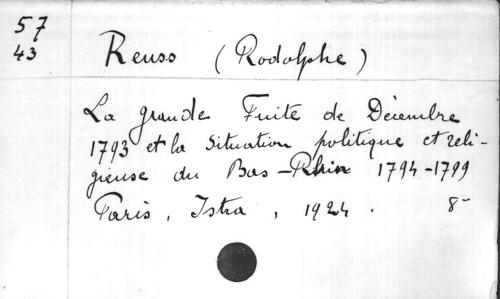 57
43
Reuss (Rodolphe)
La grande Fuite de Décembre
1793 et la situation politique et reli-
gieuse du Bas-Rhin 1794-1799
Paris, Istra, 1924. 8-